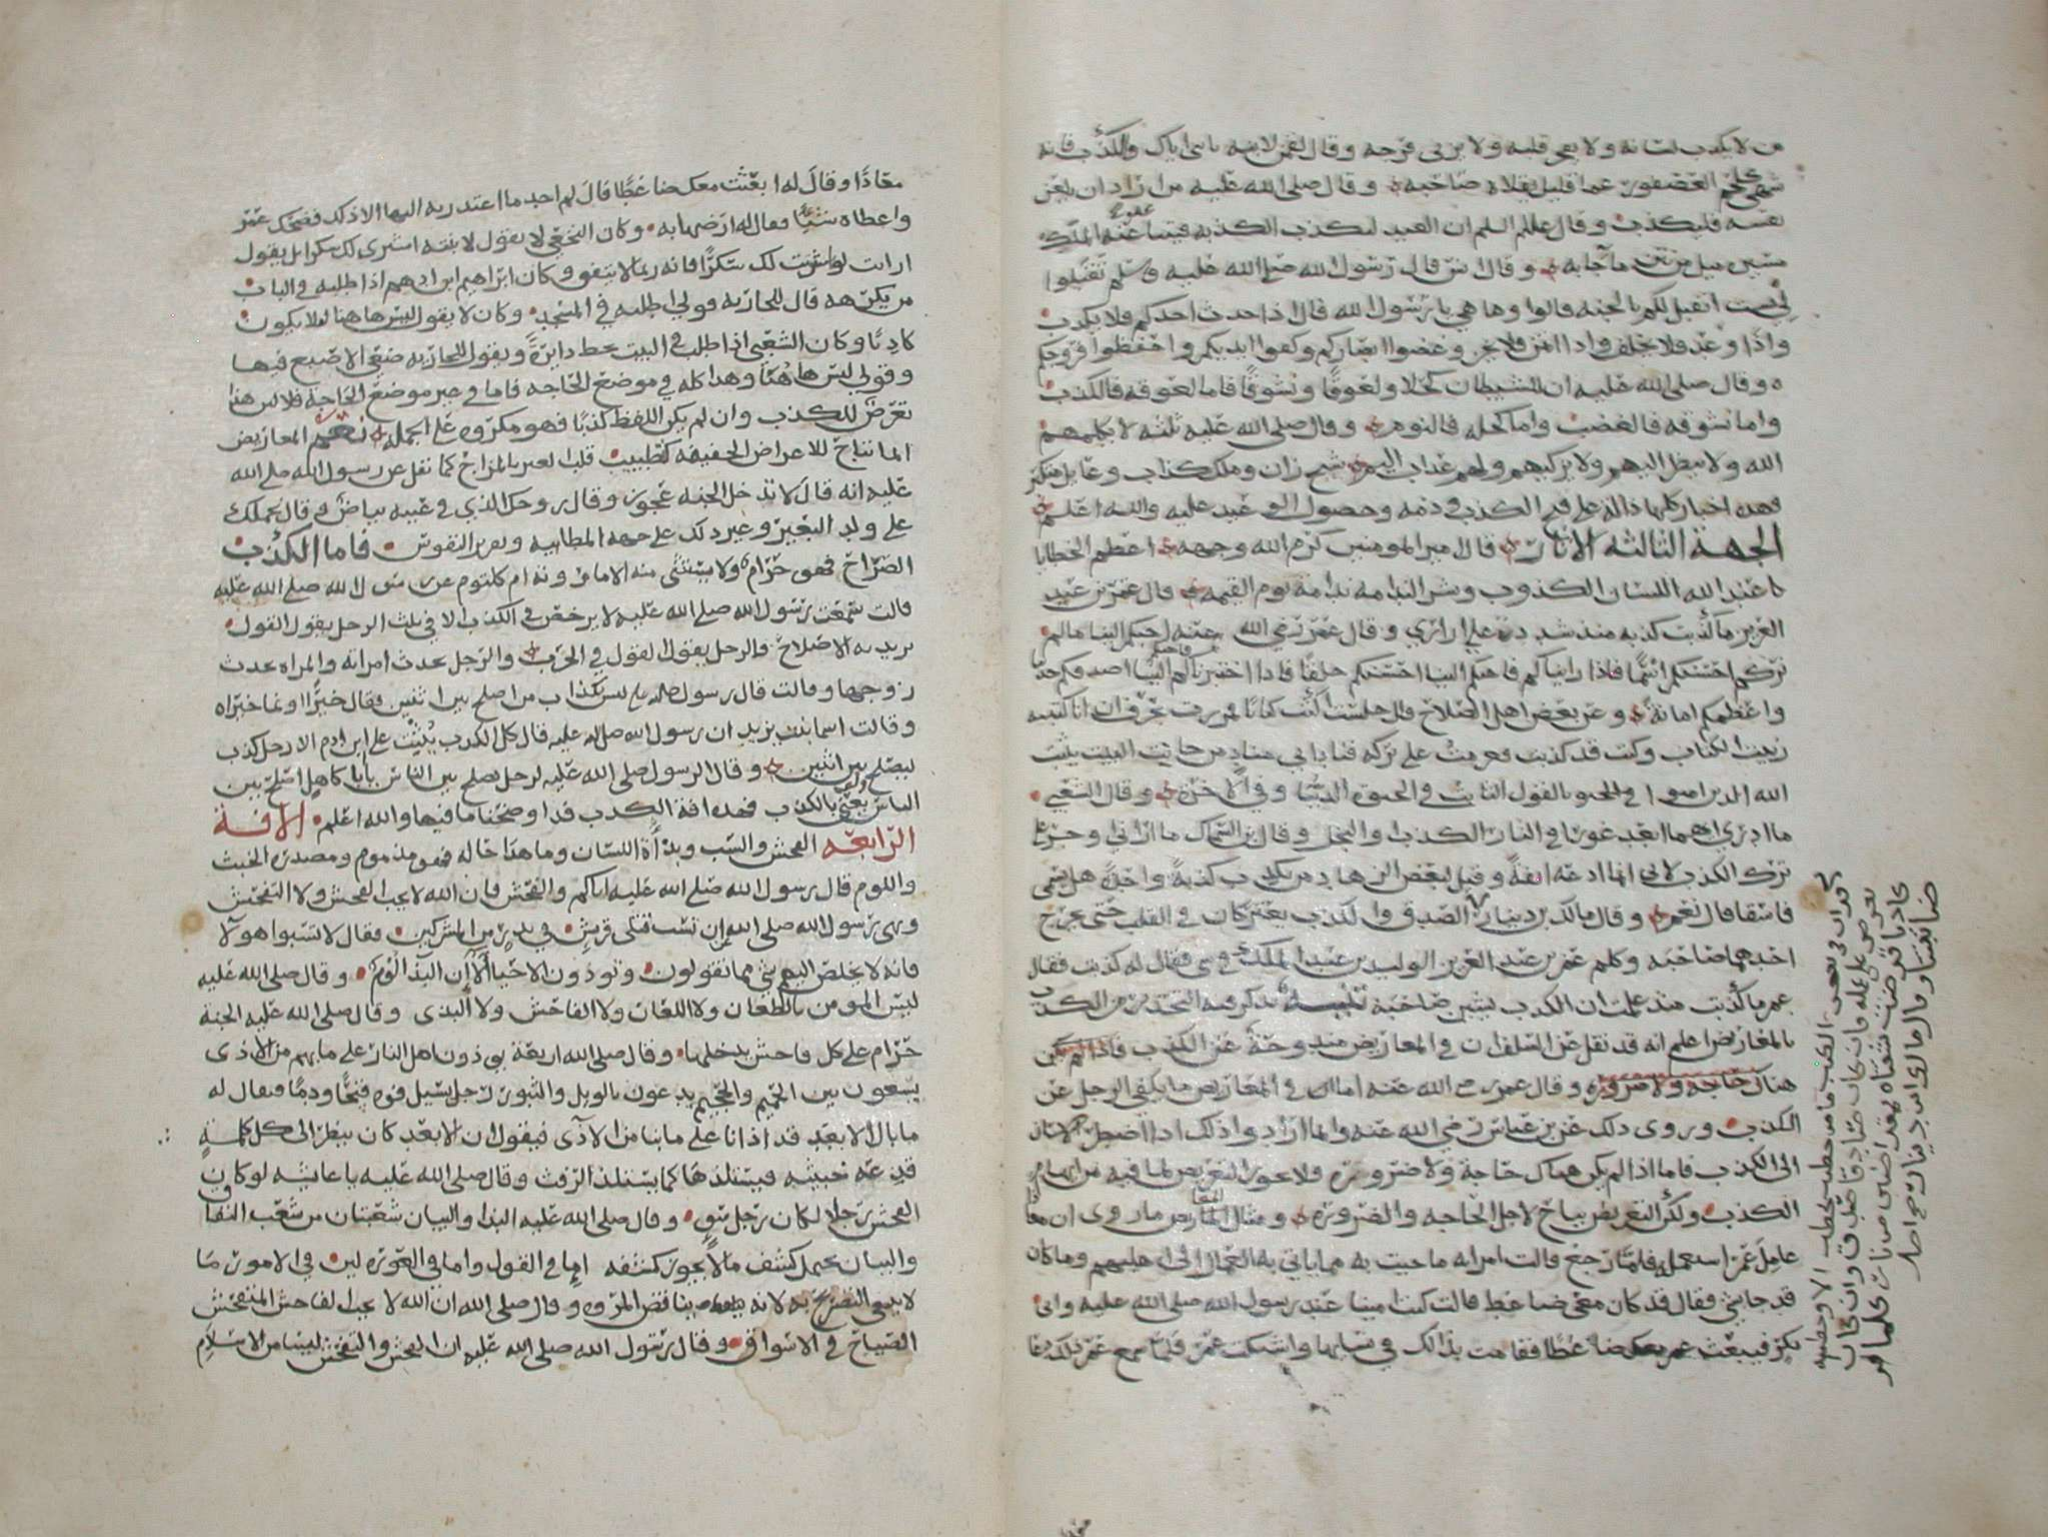 من لا يكذب لسانه ولا يعمى قلبه ولا يزني فرجه وقال لقمن لابنه يا بني اياك والكذب فانه
شهي كلحم العصفور عما قليل يقلاه صاحبه وقال صلى الله عليه من اراد ان يلعن
نفسه فليكذب وقال عليلم ان العبد ليكذب الكذبه فيتباعد عنه الملك
مسير ميل من نتن ما جا به وقال انس قال رسول الله صلى الله عليه وسلم تقبلوا
لي بست اتقبل لكم بالجنه قالوا وما هي يا رسول الله قال اذا حدث احدكم فلا يكذب
واذا وعد فلا يخلف واذا اتمن فلا يخن وغضوا ابصاركم وكفوا ايديكم واحفظوا فروجكم
وقال صلى الله عليه ان للشيطان كحلا ولعوقا ونشوقا فاما لعوقه فالكذب
واما نشوقه فالغضب واما كحله فالنوم وقال صلى الله عليه ثلثه لا يكلمهم
الله ولا ينظر اليهم ولا يزكيهم ولهم عذاب اليم شيخ زان وملك كذاب وعايل متكبر
فهذه اخبار كلها دالة على قبح الكذب وذمه وحصول الوعيد عليه والله اعلم
الجهة الثالثه الاثار قال امير المومنين كرم الله وجهه اعظم الخطايا
عند الله اللسان الكذوب وشر الندامه ندامة يوم القيمه قال عمر بن عبد
العزيز ما كذبت كذبه منذ شددت علي ازاري وقال عمر رضي الله عنه احبكم الينا مالم
نركم احسنكم اسما فاذا رايناكم فاحبكم الينا احسنكم خلقا فاذا اختبرناكم فاحبكم الينا اصدقكم حديثا
واعظمكم امانة وعن بعض اهل الصلاح قال جلست اكتب كتابا فمررت بحرف ان انا كتبته
زينت الكتاب وكنت قد كذبت فعزمت على تركه فناداني مناد من جانب البيت يثبت
الله الذين امنوا بالقول الثابت في الحيوة الدنيا وفي الاخرة وقال الشعبي
ما ادري ايهما ابعد غورا في النار الكذب او البخل وقال بن السماك ما اراني اوجر على
ترك الكذب لاني انما ادعه انفة وقيل لبعض الزهاد من يكذب كذبة واحدة هل يسمى
فاسقا قال نعم وقال مالك بن دينار الصدق والكذب يعتركان في القلب حتى يخرج
احدهما صاحبه وكلم عمر بن عبد العزيز الوليد بن عبد الملك في شي فقال له كذبت فقال
عمر ما كذبت منذ علمت ان الكذب يشين صاحبه تنبيه نذكر فيه التحذير من الكذب
بالمعاريض اعلم انه قد نقل عن السلف ان في المعاريض مندوحة عن الكذب فاذا لم يكن
هناك حاجه ولا ضروره وقال عمر رضي الله عنه اما ان في المعاريض ما يكفي الرجل عن
الكذب وروى ذلك عن بن عباس رضي الله عنه وانما ارادوا ذلك اذا اضطر الانسان
الى الكذب فاما اذا لم يكن هناك حاجة ولا ضرورة فلا يجوز التعريض لما فيه من ايهام
الكذب ولكن التعريض يباح لاجل الحاجه والضرورة ومثال المعاريض ما روى ان معاذا
عامل عمر استعمله فلما رجع قالت امراته ما جيت به مما ياتي به العمال الى اهليهم وما كان
قد جا بشي فقال قد كان معي ضاغط قالت كنت امينا عند رسول الله صلى الله عليه وابي
بكر فيبعث عمر معك ضاغطا فقامت بذلك في نسايها واشتكت عمر فلما سمع عمر ذلك دعا
معاذا وقال له ابعثت معك ضاغطا قال لم اجد ما اعتذر به اليها الا ذلك فضحك عمر
واعطاه شيئا فقال له ارضها به وكان النخعي لا يقول لابنته اشتري لك سكرا بل يقول
ارايت لو اشتريت لك سكرا فانه ربما لا يتفق وكان ابراهيم ابن ادهم اذا طلبه في الباب
من يكرهه قال للجاريه قولي اطلبه في المسجد وكان لا يقول ليس هاهنا لئلا يكون
كاذبا وكان الشعبي اذا طلب في البيت يخط دايرة ويقول للجاريه ضعي الاصبع فيها
وقولي ليس هاهنا وهذا كله في موضع الحاجه فاما في غير موضع الحاجة فلا لان هذا
تعرض للكذب وان لم يكن اللفظ كذبا فهو مكروه على الجمله نعم المعاريض
انما تباح للاغراض الخفيفه كتطييب قلب الغير بالمزاح كما نقل عن رسول الله صلى الله
عليه انه قال لا تدخل الجنه عجوز وقال زوجك الذي في عينيه بياض وقال نحملك
على ولد البعير وغير ذلك على جهه المطايبه وتعزيز النفوس فاما الكذب
الصراح فهو حرام ولا يستثنى منه الا ما روته ام كلثوم عن رسول الله صلى الله عليه
قالت سمعت رسول الله صلى الله عليه لا يرخص في الكذب الا في ثلث الرجل يقول القول
يريد به الاصلاح والرجل يقول القول في الحرب والرجل يحدث امراته والمراه تحدث
زوجها وقالت قال رسول الله صلعم ليس بكذاب من اصلح بين اثنين فقال خيرا او نما خيرا
وقالت اسما بنت يزيد ان رسول الله صلى الله عليه قال كل الكذب يكتب على ابن ادم الا رجل كذب
ليصلح بين اثنين وقال الرسول صلى الله عليه لرجل يصلح بين الناس يابا كاهل اصلح بين
الناس ولو يعني بالكذب فهذه افة الكذب قد اوضحنا ما فيها والله اعلم الافة
الرابعه الفحش والسب وبذاة اللسان وما هذا حاله فهو مذموم ومصدره الخبث
واللوم قال رسول الله صلى الله عليه اياكم والفحش فان الله لا يحب الفحش ولا التفحش
ونهى رسول الله صلى الله عن ان تسب قتلى قريش في بدر من المشركين فقال لا تسبوا هولا
فانه لا يخلص اليهم شي مما تقولون وتوذون الاحيا الا ان البذا لوم وقال صلى الله عليه
ليس المومن بالطعان ولا اللعان ولا الفاحش ولا البذى وقال صلى الله عليه الجنة
حرام على كل فاحش يدخلها وقال صلى الله اربعة يوذون اهل النار على ما بهم من الاذى
يسعون بين الحميم والجحيم يدعون بالويل والثبور رجل يسيل فوه قيحا ودما فيقال له
ما بال الابعد قد اذانا على ما بنا من الاذى فيقول ان الابعد كان ينظر الى كل كلمة
قذعه خبيثه فيستلذها كما يستلذ الرفث وقال صلى الله عليه يا عايشه لو كان
الفحش رجلا لكان رجل سو وقال صلى الله عليه البذا والبيان شعبتان من شعب النفاق
والبيان يحتمل كشف ما لا يجوز كشفه اما في القول واما في العورة لين في الامور ما
لا ينبغي التصريح به لانه يناقض المروه وقال صلى الله ان الله لا يحب الفاحش المتفحش
الصياح في الاسواق وقال رسول الله صلى الله عليه ان الفحش والتفحش ليسا من الاسلام